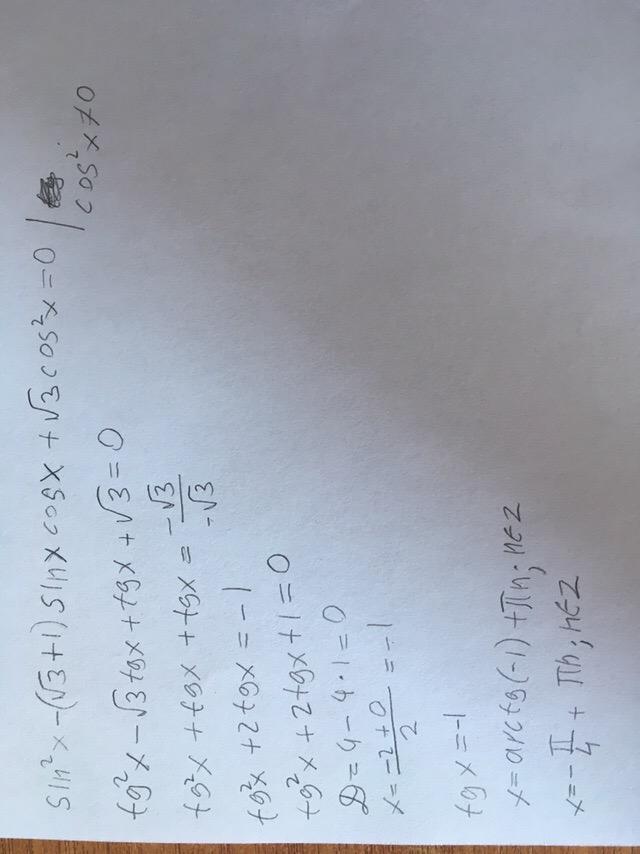 sin²x -(√3+1) sinx cosx + √3 cos²x = 0 | cos²x≠0
tg²x - √3 tgx + tgx + √3 = 0
tg²x + tgx + tgx = -√3/-√3
tg²x + 2tgx = -1
tg²x + 2tgx + 1 = 0
D = 4 - 4·1 = 0
x = -2+0/2 = -1
tg x = -1
x = arctg(-1) + πn; n∈Z
x = -π/4 + πn; n∈Z